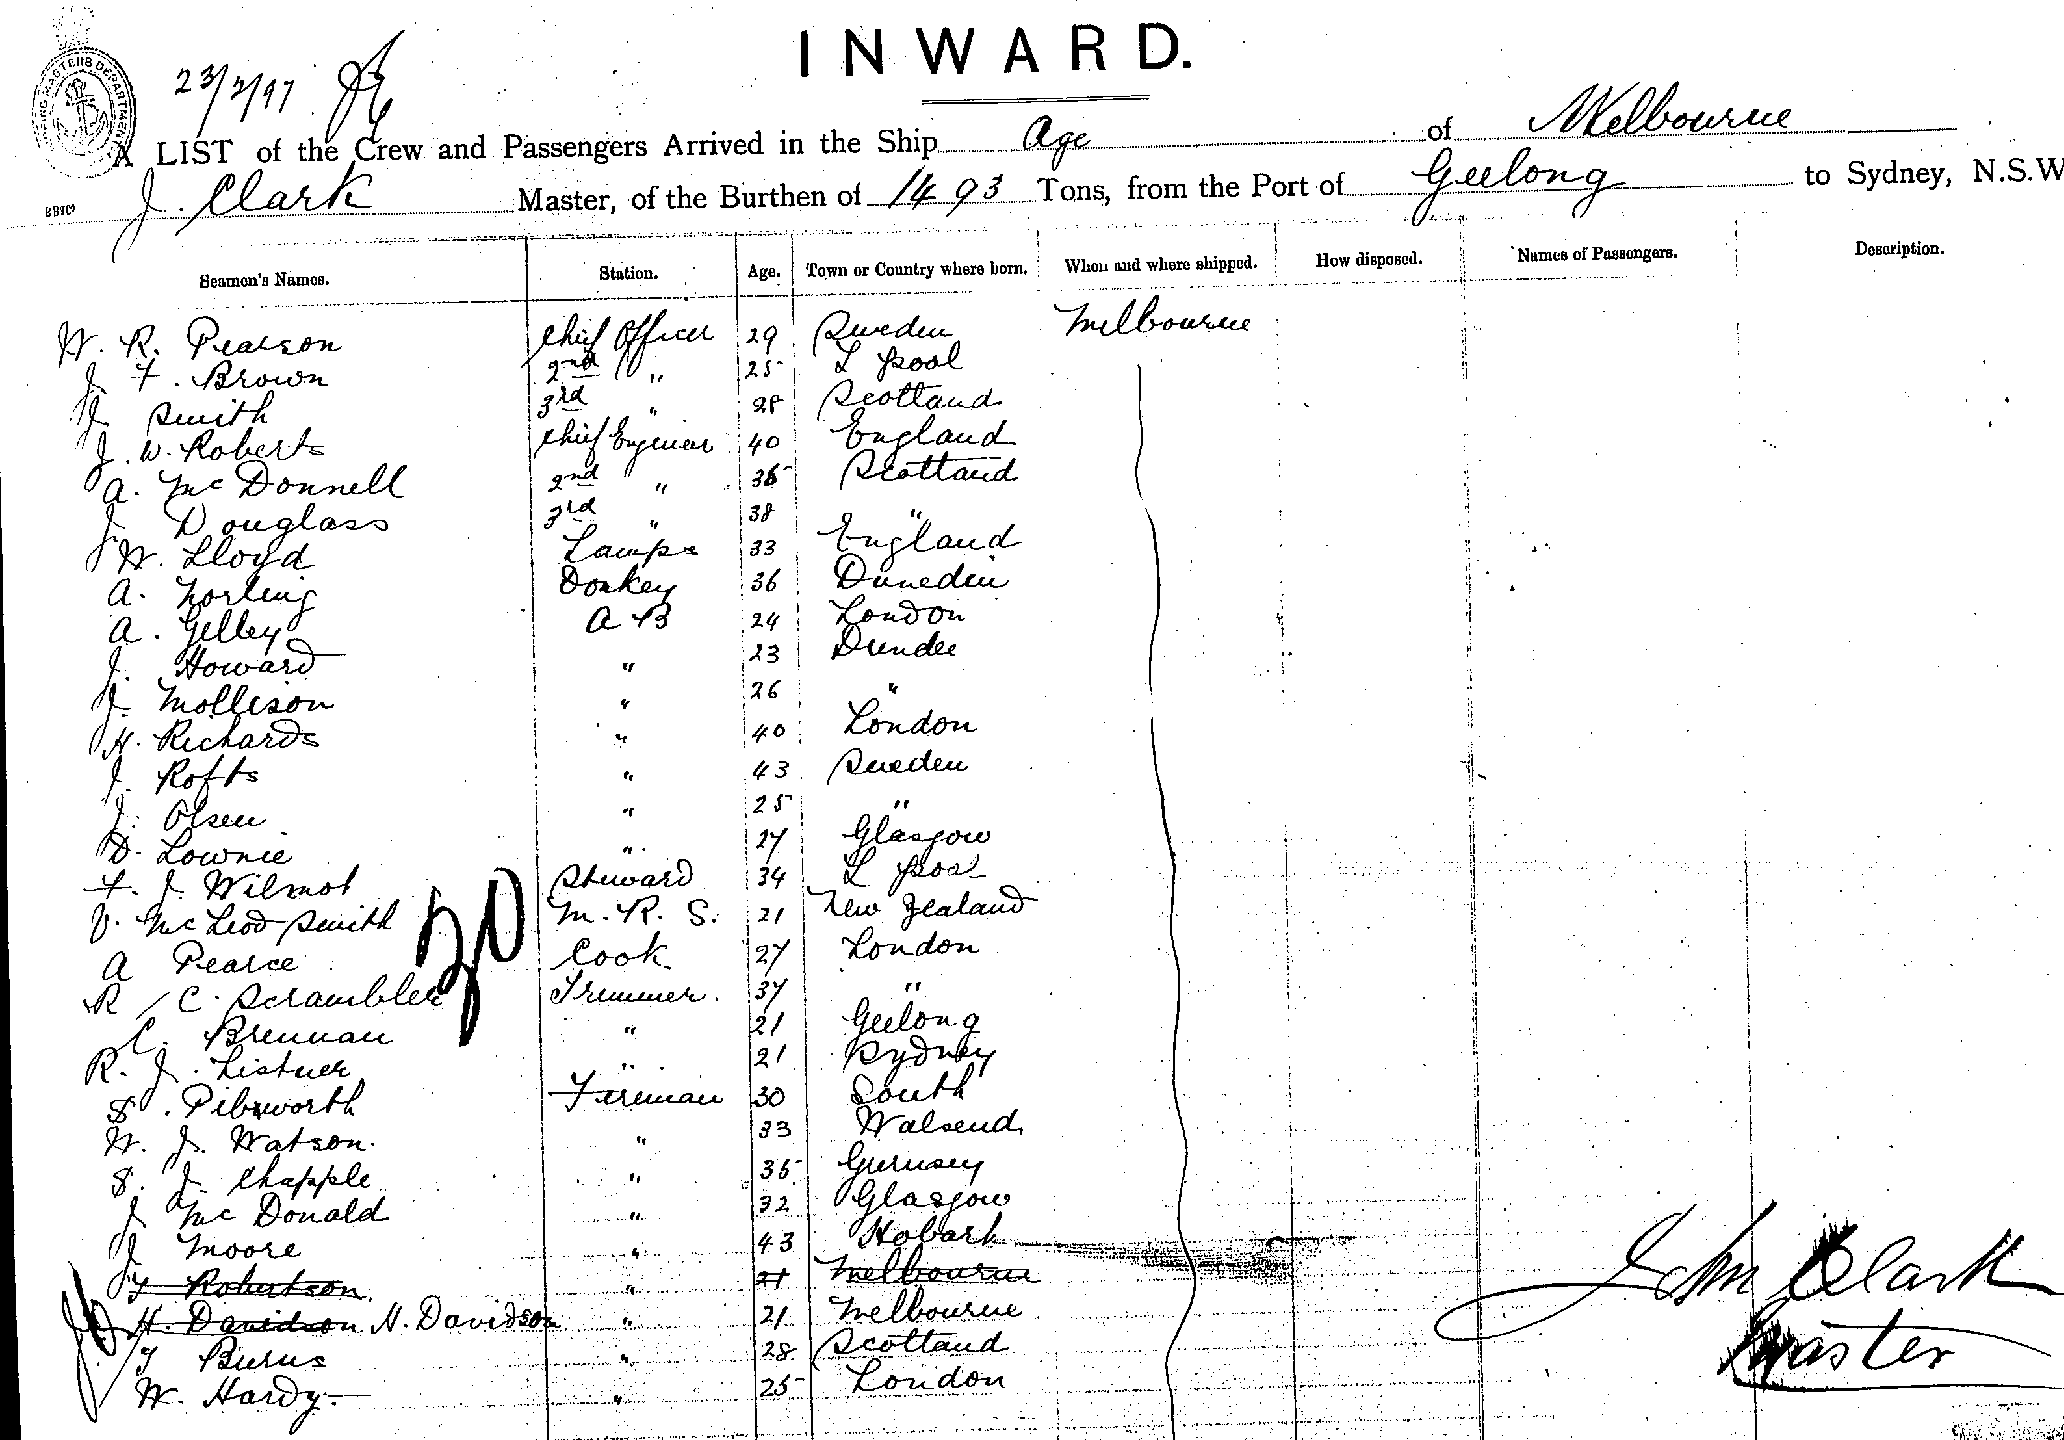 INWARD.
23/2/97
A LIST of the Crew and Passengers Arrived in the Ship Age of Melbourne
J. Clark Master, of the Burthen of 1493 Tons, from the Port of Geelong to Sydney, N.S.W
Seamen's Names. Station. Age. Town or Country where born. When and where shipped. How disposed. Names of Passengers. Description.
W. R. Pearson Chief Officer 29 Sweden Melbourne
J. F. Brown 2nd " 25 L pool
J. Smith 3rd " 28 Scotland
J. W. Roberts Chief Engineer 40 England
A. McDonnell 2nd " 36 Scotland
J. Douglass 3rd " 38 "
W. Lloyd Lamps 33 England
A. Norling Donkey 36 Dunedin
A. Gelley A B 24 London
J. Howard " 23 Dundee
J. Mollison " 26 "
H. Richards " 40 London
J. Rofts " 43 Sweden
J. Olsen " 25 "
D. Lownie " 27 Glasgow
F. J. Wilmot Steward 34 L pool
V. McLeod Smith M. R. S. 21 New Zealand
A Pearce Cook 27 London
30
R. C. Scrambler Trimmer. 37 "
C. Brennan " 21 Geelong
R. J. Listner " 21 Sydney
S. Pibworth Fireman 30 South
W. J. Watson. " 33 Walsend
S. J. Chapple " 35 Guernsey
J McDonald " 32 Glasgow
J Moore " 43 Hobart
T Robertson. " 21 Melbourne
H. Davidson H. Davidson " 21 Melbourne
T Burns " 28 Scotland
W. Hardy. " 25 London
John Clark
Master